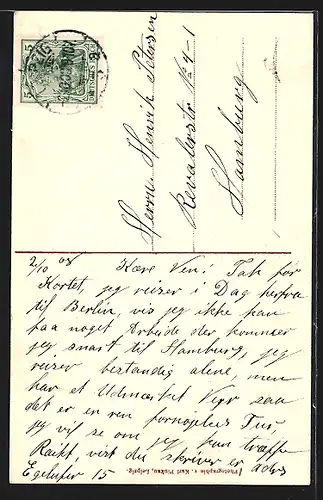 Herrn Henrik Petersen
Revalerstr No 4-1
Hamburg
2/10 08 Kære Ven! Tak för
Kortet, jeg reizer i Dag herfra
til Berlin, vis jeg ikke kan
paa noget Arbeide der kommer
jeg snart til Hamburg, jeg
reizer bestandig alene, men
har et Udmærket Vejr saa
det er en ren fornøjelse
jeg vil se om jeg kan træffe
du skriver er adrs
15
Photographie v. Kurt Pinkau, Leipzig.
5 5